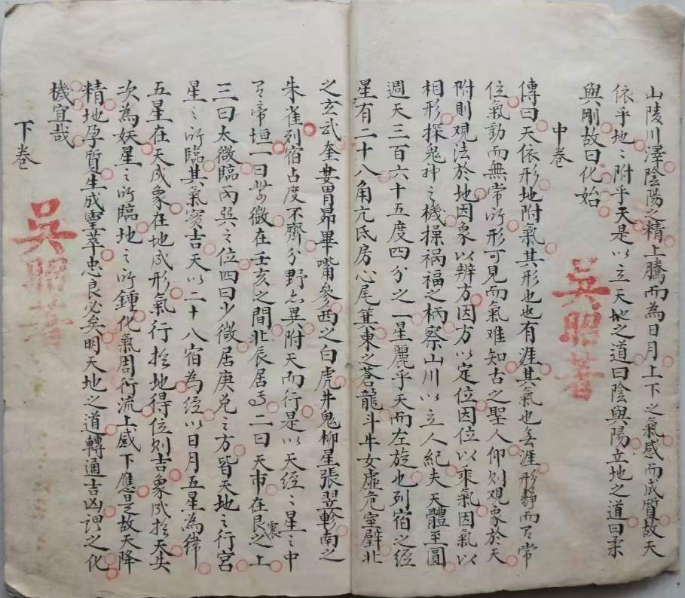 山陵川澤陰陽之精上騰而為日月上下之氣感而成質故天
依乎地〻附乎天是以立天地之道曰陰與陽立地之道曰柔
與剛故曰化始
中卷
吳昭著
傳曰天依形地附氣其形也也有涯其氣也旡涯形靜而有常
位氣動而無常所形可見而氣难知古之聖人仰則观象於天
附則观法於地因象以辨方因方以定位因位以乘氣因氣以
相形探鬼神之機操禍福之柄察山川以立人紀夫天體至圓
週天三百六十五度四分之一星麗乎天而左旋也列宿之經
星有二十八角亢氐房心尾箕東之蒼龍斗牛女虛危室壁北
之玄武奎婁胃昴畢嘴參西之白虎井鬼柳星張翌軫南之
朱雀列宿占度不齊分野亦異附天而行是以天經〻星之中
有帝垣一曰紫微在壬亥之間北辰居二曰天市在艮震之上
三曰太微臨丙巽之位四曰少微居庚兑之方皆天地之行宮
星之所臨其氣寔吉天以二十八宿為經以日月五星為緯
五星在天成象在地成形氣行於地得位則吉象成於天失
次為妖星之所臨地之所鍾化氣周行流上感下應是故天降
精地孕質生成灵萃忠良必矣明天地之道轉通吉凶神之化
機宜哉
下卷
吳昭著